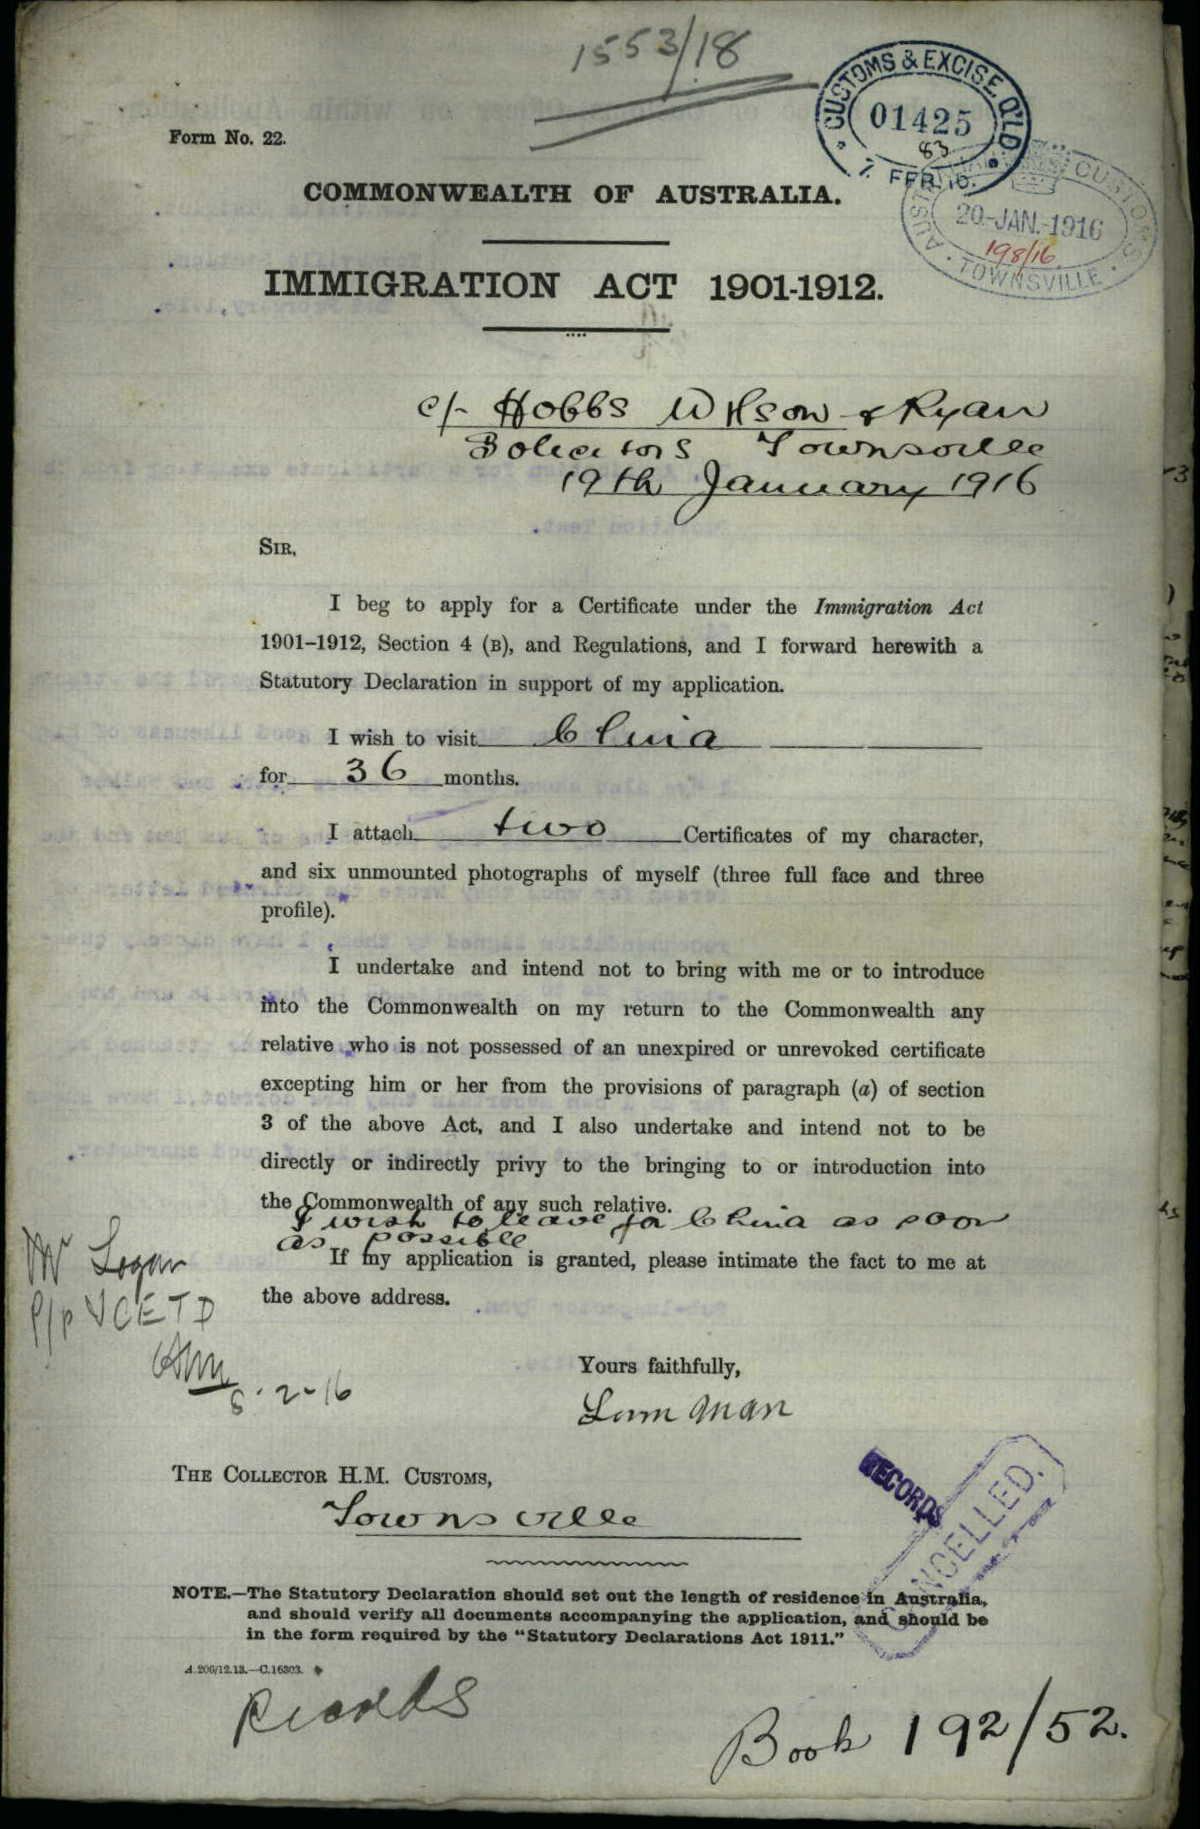 1553/18
CUSTOMS & EXCISE Q'LD
01425
83
7 FEB. 16.
Form No. 22.
COMMONWEALTH OF AUSTRALIA.
AUSTRALIAN CUSTOMS
20-JAN.-1916
198/16
TOWNSVILLE
IMMIGRATION ACT 1901-1912.
c/- Hobbs Wilson & Ryan
Solicitors Townsville
19th January 1916
SIR,
I beg to apply for a Certificate under the Immigration Act
1901–1912, Section 4 (B), and Regulations, and I forward herewith a
Statutory Declaration in support of my application.
I wish to visit China
for 36 months.
I attach two Certificates of my character,
and six unmounted photographs of myself (three full face and three
profile).
I undertake and intend not to bring with me or to introduce
into the Commonwealth on my return to the Commonwealth any
relative who is not possessed of an unexpired or unrevoked certificate
excepting him or her from the provisions of paragraph (a) of section
3 of the above Act, and I also undertake and intend not to be
directly or indirectly privy to the bringing to or introduction into
the Commonwealth of any such relative.
I wish to leave for China as soon
as possible
If my application is granted, please intimate the fact to me at
the above address.
Mr Logan
p/p VCETD
8.2-16
Yours faithfully,
Lum Man
THE COLLECTOR H.M. CUSTOMS,
Townsville
RECORDS
CANCELLED.
NOTE.—The Statutory Declaration should set out the length of residence in Australia,
and should verify all documents accompanying the application, and should be
in the form required by the "Statutory Declarations Act 1911."
A.206/12.13.—C.16303.
Records
Book 192/52.